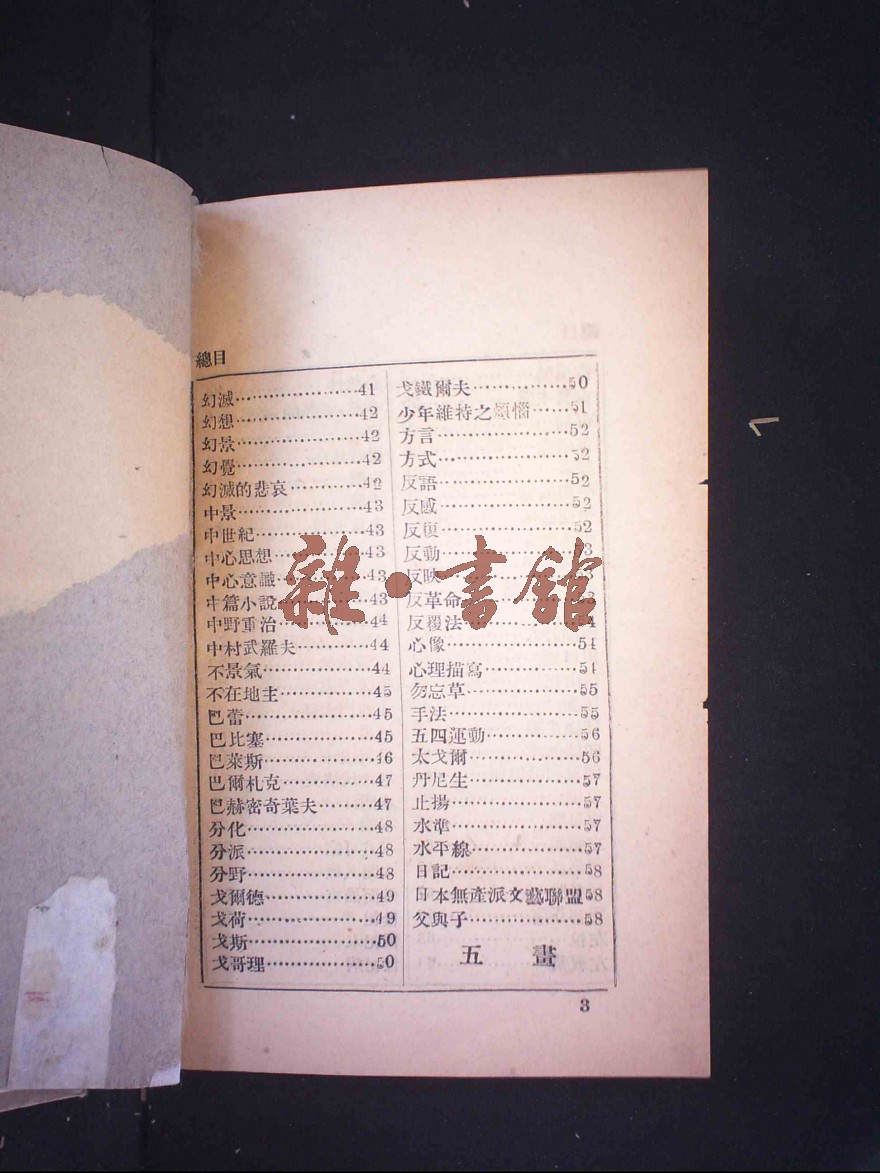 總目
幻滅··················41
幻想··················42
幻景··················42
幻覺··················42
幻滅的悲哀··················42
中景··················43
中世紀··················43
中心思想··················43
中心意識··················43
中篇小說··················43
中野重治··················44
中村武羅夫··················44
不景氣··················44
不在地主··················45
巴蕾··················45
巴比塞··················45
巴萊斯··················46
巴爾札克··················47
巴赫密奇葉夫··················47
分化··················48
分派··················48
分野··················48
戈爾德··················49
戈荷··················49
戈斯··················50
戈哥理··················50
戈鐵爾夫··················50
少年維持之煩惱··················51
方言··················52
方式··················52
反語··················52
反感··················52
反復··················52
反動··················53
反映··················53
反革命··················53
反覆法··················54
心像··················54
心理描寫··················54
勿忘草··················55
手法··················55
五四運動··················56
太戈爾··················56
丹尼生··················57
止揚··················57
水準··················57
水平線··················57
日記··················58
日本無產派文藝聯盟58
父與子··················58
五 畫
3
雜·書館